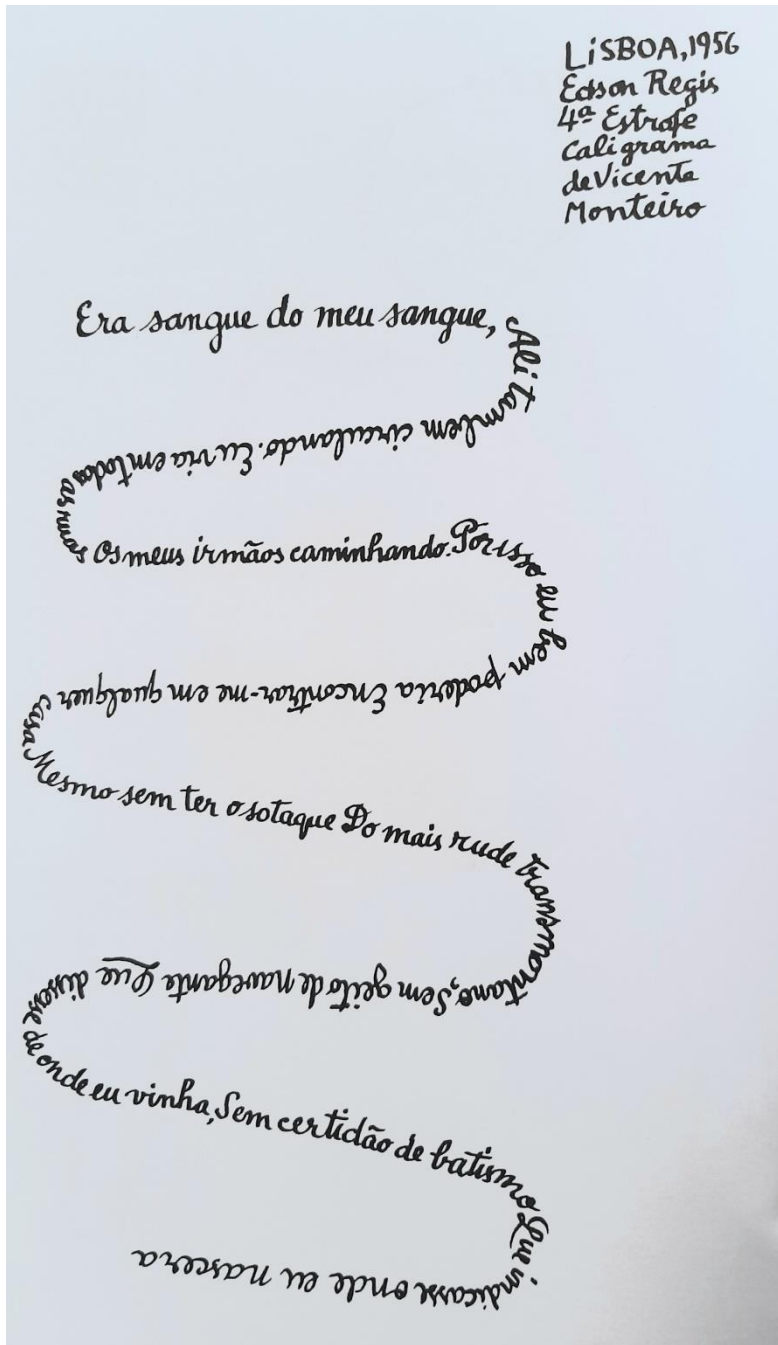 LiSBOA, 1956
Edson Regis
4ª Estrofe
Caligrama
de Vicente
Monteiro
Era sangue do meu sangue,
Ali também circulando. Eu via em todas as ruas
Os meus irmãos caminhando. Por isso eu bem
poderia Encontrar-me em qualquer casa
Mesmo sem ter o sotaque Do mais rude transmontano,
Sem geito de navegante Que dissesse
de onde eu vinha, Sem certidão de batismo
Que indicasse onde eu nascera